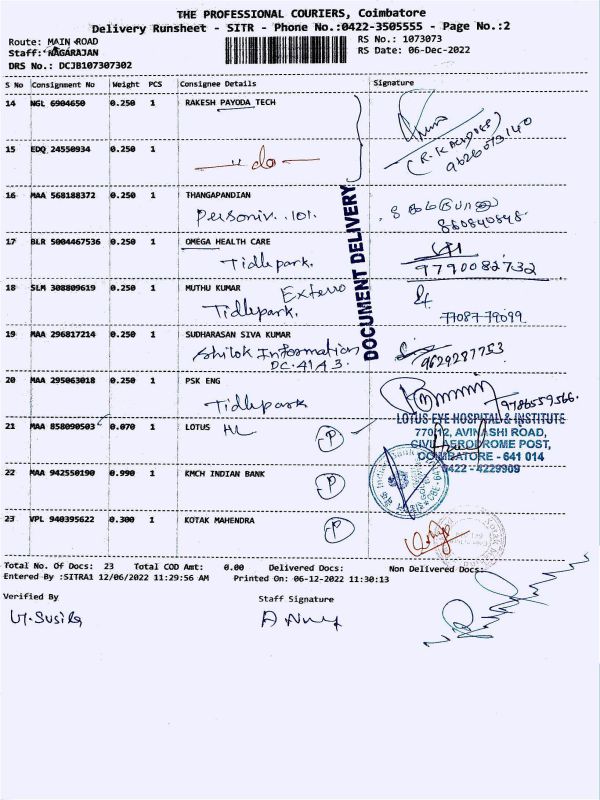 THE PROFESSIONAL COURIERS, Coimbatore
Delivery Runsheet - SITR - Phone No.:0422-3505555 - Page No.:2
Route: MAIN ROAD
RS No.: 1073073
Staff: NAGARAJAN
RS Date: 06-Dec-2022
DRS No.: DCJB107307302
S No Consignment No Weight PCS Consignee Details Signature
14 NGL 6904650 0.250 1 RAKESH PAYODA TECH
15 EDQ 24550934 0.250 1 do
16 MAA 568188372 0.250 1 THANGAPANDIAN
Personiv. 101.
17 BLR 5004467536 0.250 1 OMEGA HEALTH CARE
Tidlepark. 9790082732
18 SLM 308809619 0.250 1 MUTHU KUMAR
Tidlepark. 7708779099
19 MAA 296817214 0.250 1 SUDHARASAN SIVA KUMAR
Information 9629287753
20 MAA 295063018 0.250 1 PSK ENG
Tidlepark 9786559566.
21 MAA 858090503 0.070 1 LOTUS P
22 MAA 942550190 0.990 1 KMCH INDIAN BANK P
23 VPL 940395622 0.300 1 KOTAK MAHENDRA P
DOCUMENT DELIVERY
LOTUS EYE HOSPITAL & INSTITUTE
770/12, AVINASHI ROAD,
CIVIL AERODROME POST,
COIMBATORE - 641 014
0422 - 4229909
Total No. Of Docs: 23 Total COD Amt: 0.00 Delivered Docs: Non Delivered Docs:
Entered By :SITRA1 12/06/2022 11:29:56 AM Printed On: 06-12-2022 11:30:13
Verified By Staff Signature